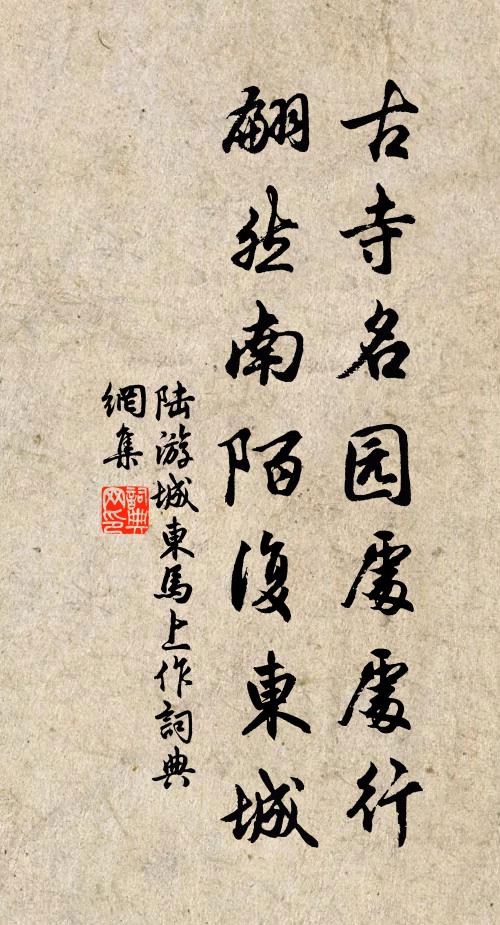 古寺名园處處行
翩然南陌復東城
陆游城東馬上作詞典
網集
詞典
网印